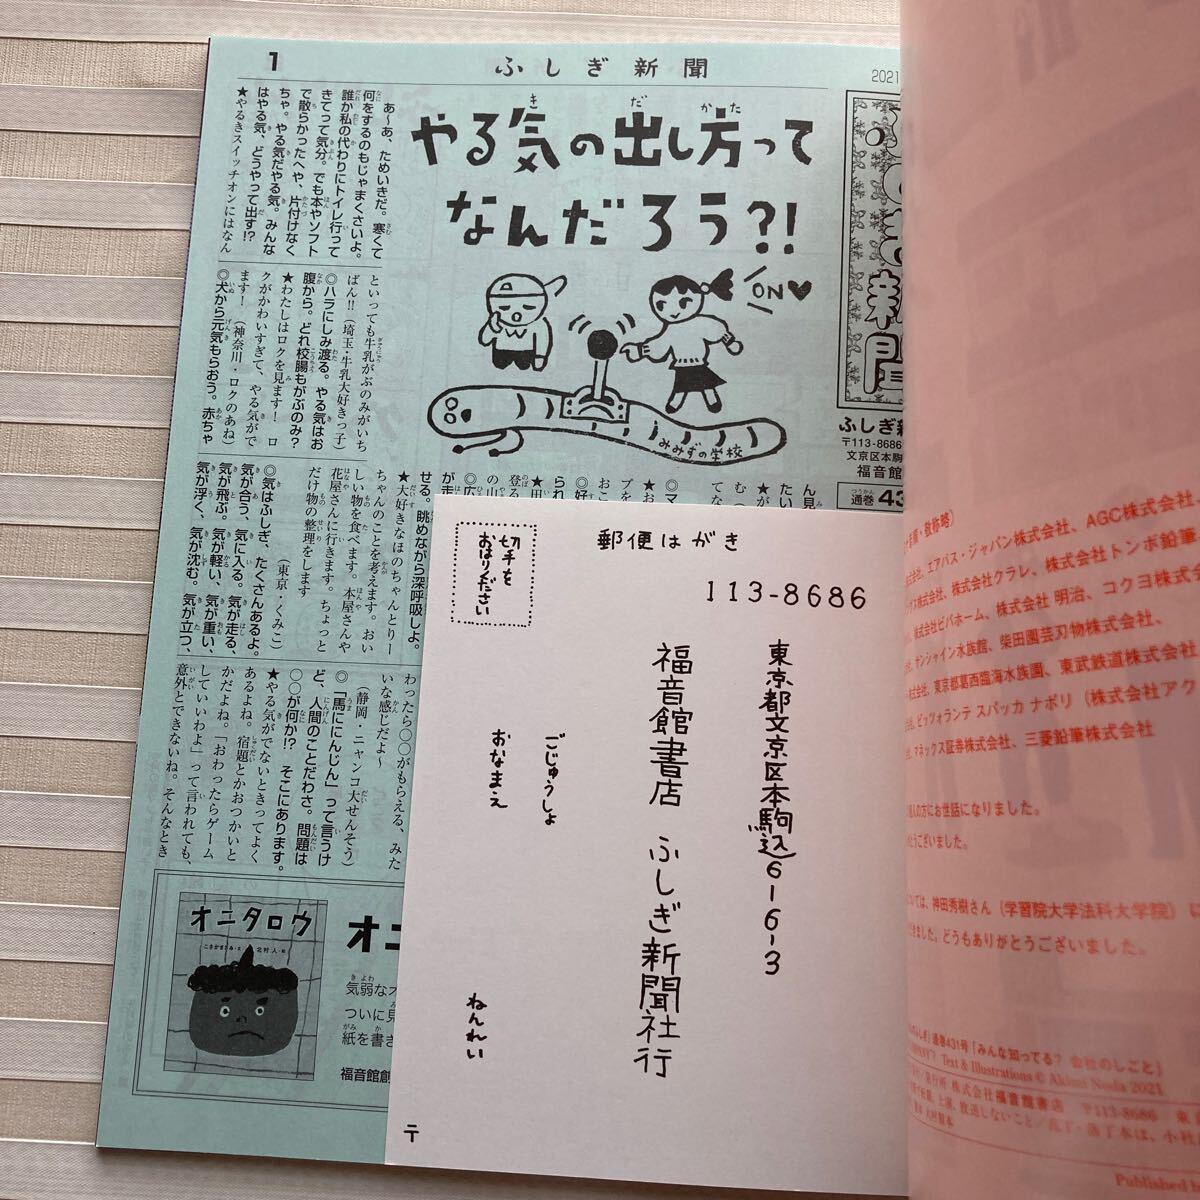 1
ふしぎ新聞
2021
やる気の出し方って
なんだろう?!
ON
みみずの学校
あ〜あ、ためいきだ。寒くて
何をするのもじゃまくさいよ。
誰か私の代わりにトイレ行って
きてって気分。でも本やソフト
で散らかったへや、片付けなく
ちゃ。やる気だやる気。みんな
はやる気、どうやって出す!?
★やるきスイッチオンにはなん
といっても牛乳がぶのみがいち
ばん!!（埼玉・牛乳大好きっ子）
◎ハラにしみ渡る。やる気はお
腹から。どれ校腸もがぶのみ?
★わたしはロクを見ます! ロ
クがかわいすぎて、やる気がで
ます!（神奈川・ロクのあね）
◎犬から元気もらおう。赤ちゃ
ふしぎ新
〒113-8686
文京区本駒
福音館
通巻43
せる。眺めながら深呼吸しよ。
★大好きなほのちゃんとりー
ちゃんのことを考えます。おい
しい物を食べます。本屋さんや
花屋さんに行きます。ちょっと
だけ物の整理をします
（東京・くみこ）
◎気はふしぎ、たくさんあるよ。
気が合う、気に入る。気が走る、
気が飛ぶ。気が軽い、気が重い、
気が浮く、気が沈む。気が立つ、
わったら○○がもらえる、みた
いな感じだよ〜
（静岡・ニャンコ大せんそう）
◎「馬ににんじん」って言うけ
ど、人間のことだわさ。問題は
○○が何か!? そこにあります。
★やる気がでないときってよく
あるよね。宿題とかおつかいと
かだよね。「おわったらゲーム
していいわよ」って言われても、
意外とできないね。そんなとき
オニタロウ
こさかまさみ・文
北村人・絵
オニ
気弱なオ
ついに見
紙を書き
福音館創
切手を
おはりください
郵便はがき
113-8686
東京都文京区本駒込6-6-3
福音館書店 ふしぎ新聞社行
ごじゅうしょ
おなまえ
ねんれい
〒
・敬称略）
エアバス・ジャパン株式会社、AGC株式会社、
株式会社クラレ、株式会社トンボ鉛筆、
株式会社ビバホーム、株式会社 明治、コクヨ株式会
サンシャイン水族館、柴田園芸刃物株式会社、
東京都葛西臨海水族園、東武鉄道株式会社
ピッツォランテ スパッカ ナポリ（株式会社アク
マネックス証券株式会社、三菱鉛筆株式会社
人の方にお世話になりました。
とうございました。
ついては、神田秀樹さん（学習院大学法科大学院）に
きました。どうもありがとうございました。
のふしぎ』通巻431号「みんな知ってる? 会社のしごと」
Text & Illustrations © Akimi Noda 2021
発行所 株式会社福音館書店 〒113-8686
Published